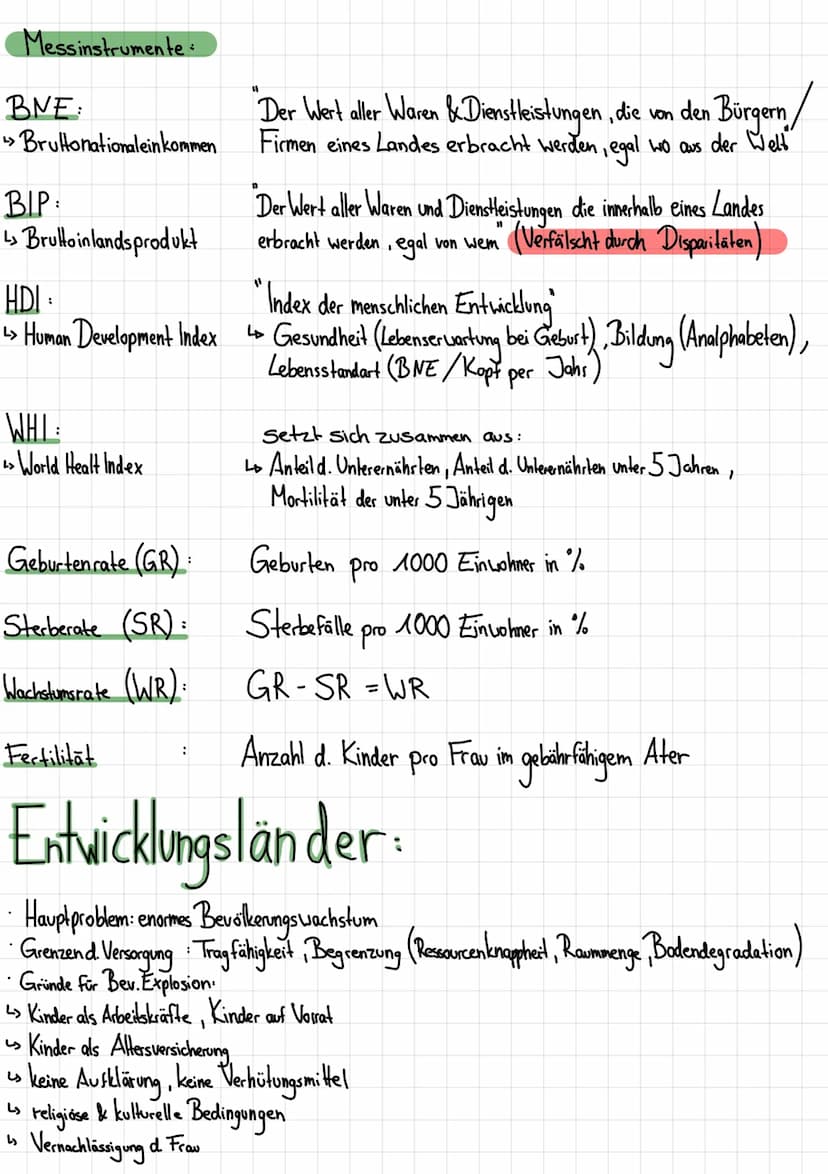 Messinstrumente:
BNE: "Der Wert aller Waren & Dienstleistungen, die von den Bürgern/
↳ Bruttonationaleinkommen Firmen eines Landes erbracht werden, egal wo aus der Welt"
BIP: "Der Wert aller Waren und Dienstleistungen die innerhalb eines Landes
↳ Bruttoinlandsprodukt erbracht werden, egal von wem" (Verfälscht durch Disparitäten)
HDI: "Index der menschlichen Entwicklung"
↳ Human Development Index ↳ Gesundheit (Lebenserwartung bei Geburt), Bildung (Analphabeten),
Lebensstandart (BNE/Kopf per Jahr)
WHI: setzt sich zusammen aus:
↳ World Healt Index ↳ Anteil d. Unterernährten, Anteil d. Unterernährten unter 5 Jahren,
Mortilität der unter 5 Jährigen
Geburtenrate (GR): Geburten pro 1000 Einwohner in %
Sterberate (SR): Sterbefälle pro 1000 Einwohner in %
Wachstumsrate (WR): GR - SR = WR
Fertilität : Anzahl d. Kinder pro Frau im gebährfähigem Ater
Entwicklungsländer:
· Hauptproblem: enormes Bevölkerungswachstum
· Grenzen d. Versorgung : Tragfähigkeit, Begrenzung (Ressourcenknappheit, Raummenge, Bodendegradation)
· Gründe für Bev. Explosion:
↳ Kinder als Arbeitskräfte, Kinder auf Vorrat
↳ Kinder als Altersversicherung
↳ keine Aufklärung, keine Verhütungsmittel
↳ religiöse & kulturelle Bedingungen
↳ Vernachlässigung d Frau